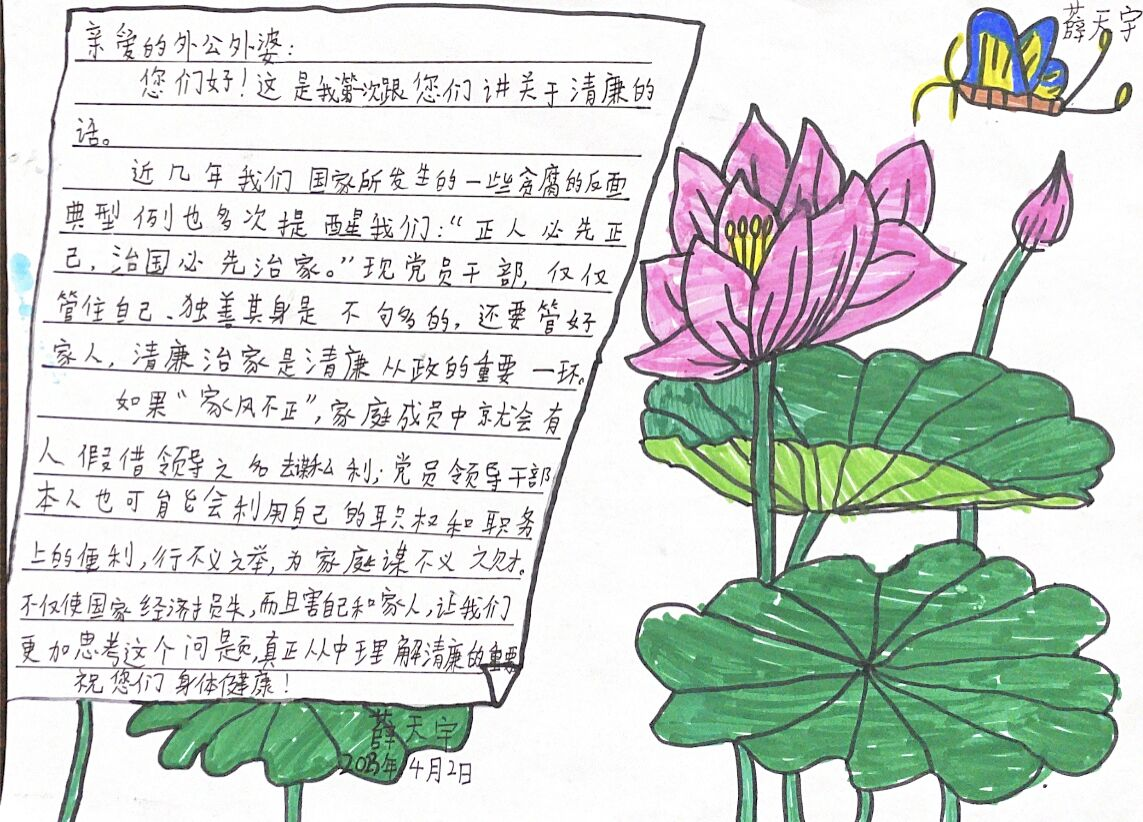 薛天宇
亲爱的外公外婆：
您们好！这是我第一次跟您们讲关于清廉的
话。
近几年我们国家所发生的一些贪腐的反面
典型例也多次提醒我们：“正人必先正
己，治国必先治家。”现党员干部，仅仅
管住自己、独善其身是不句多的，还要管好
家人，清廉治家是清廉从政的重要一环。
如果“家风不正”，家庭成员中就会有
人假借领导之名去谋私利；党员领导干部
本人也可能会利用自己的职权和职务
上的便利，行不义之举，为家庭谋不义之财。
不仅使国家经济损失，而且害自己和家人，让我们
更加思考这个问题，真正从中理解清廉的重要
祝您们身体健康！
薛天宇
2023年4月2日